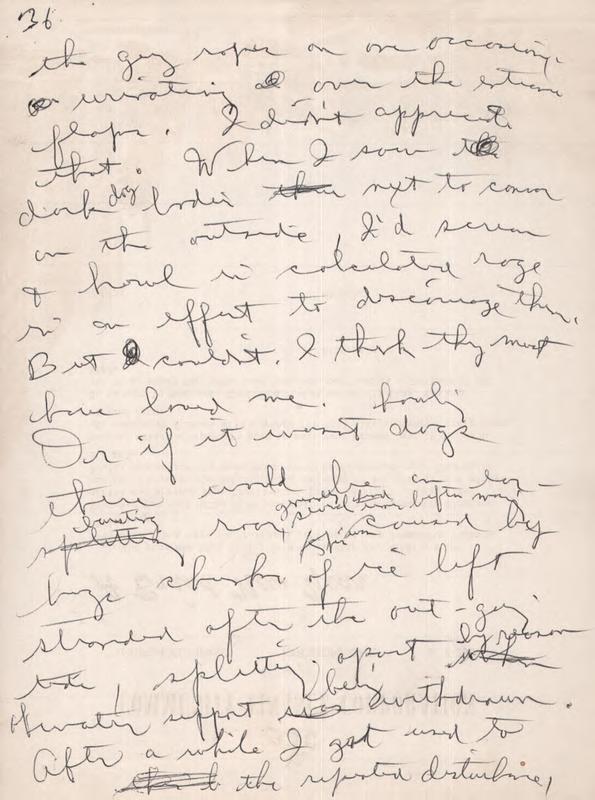 36
the guy ropes on one occasion,
urinating over the extreme
flaps. I didn't appreciate
that. When I saw
dark dog bodies next to canvas
on the outside, I'd scream
& howl in calculated rage
in an effort to discourage them.
But I couldn't. I think they must
have loved me. howling
Or if it wasn't dogs
there would be an ear-
bursting roar caused by
huge chunks of ice left
stranded after the out-going
tide, splitting apart by reason
of water support being withdrawn.
After a while I got used to
the repeated disturbance,